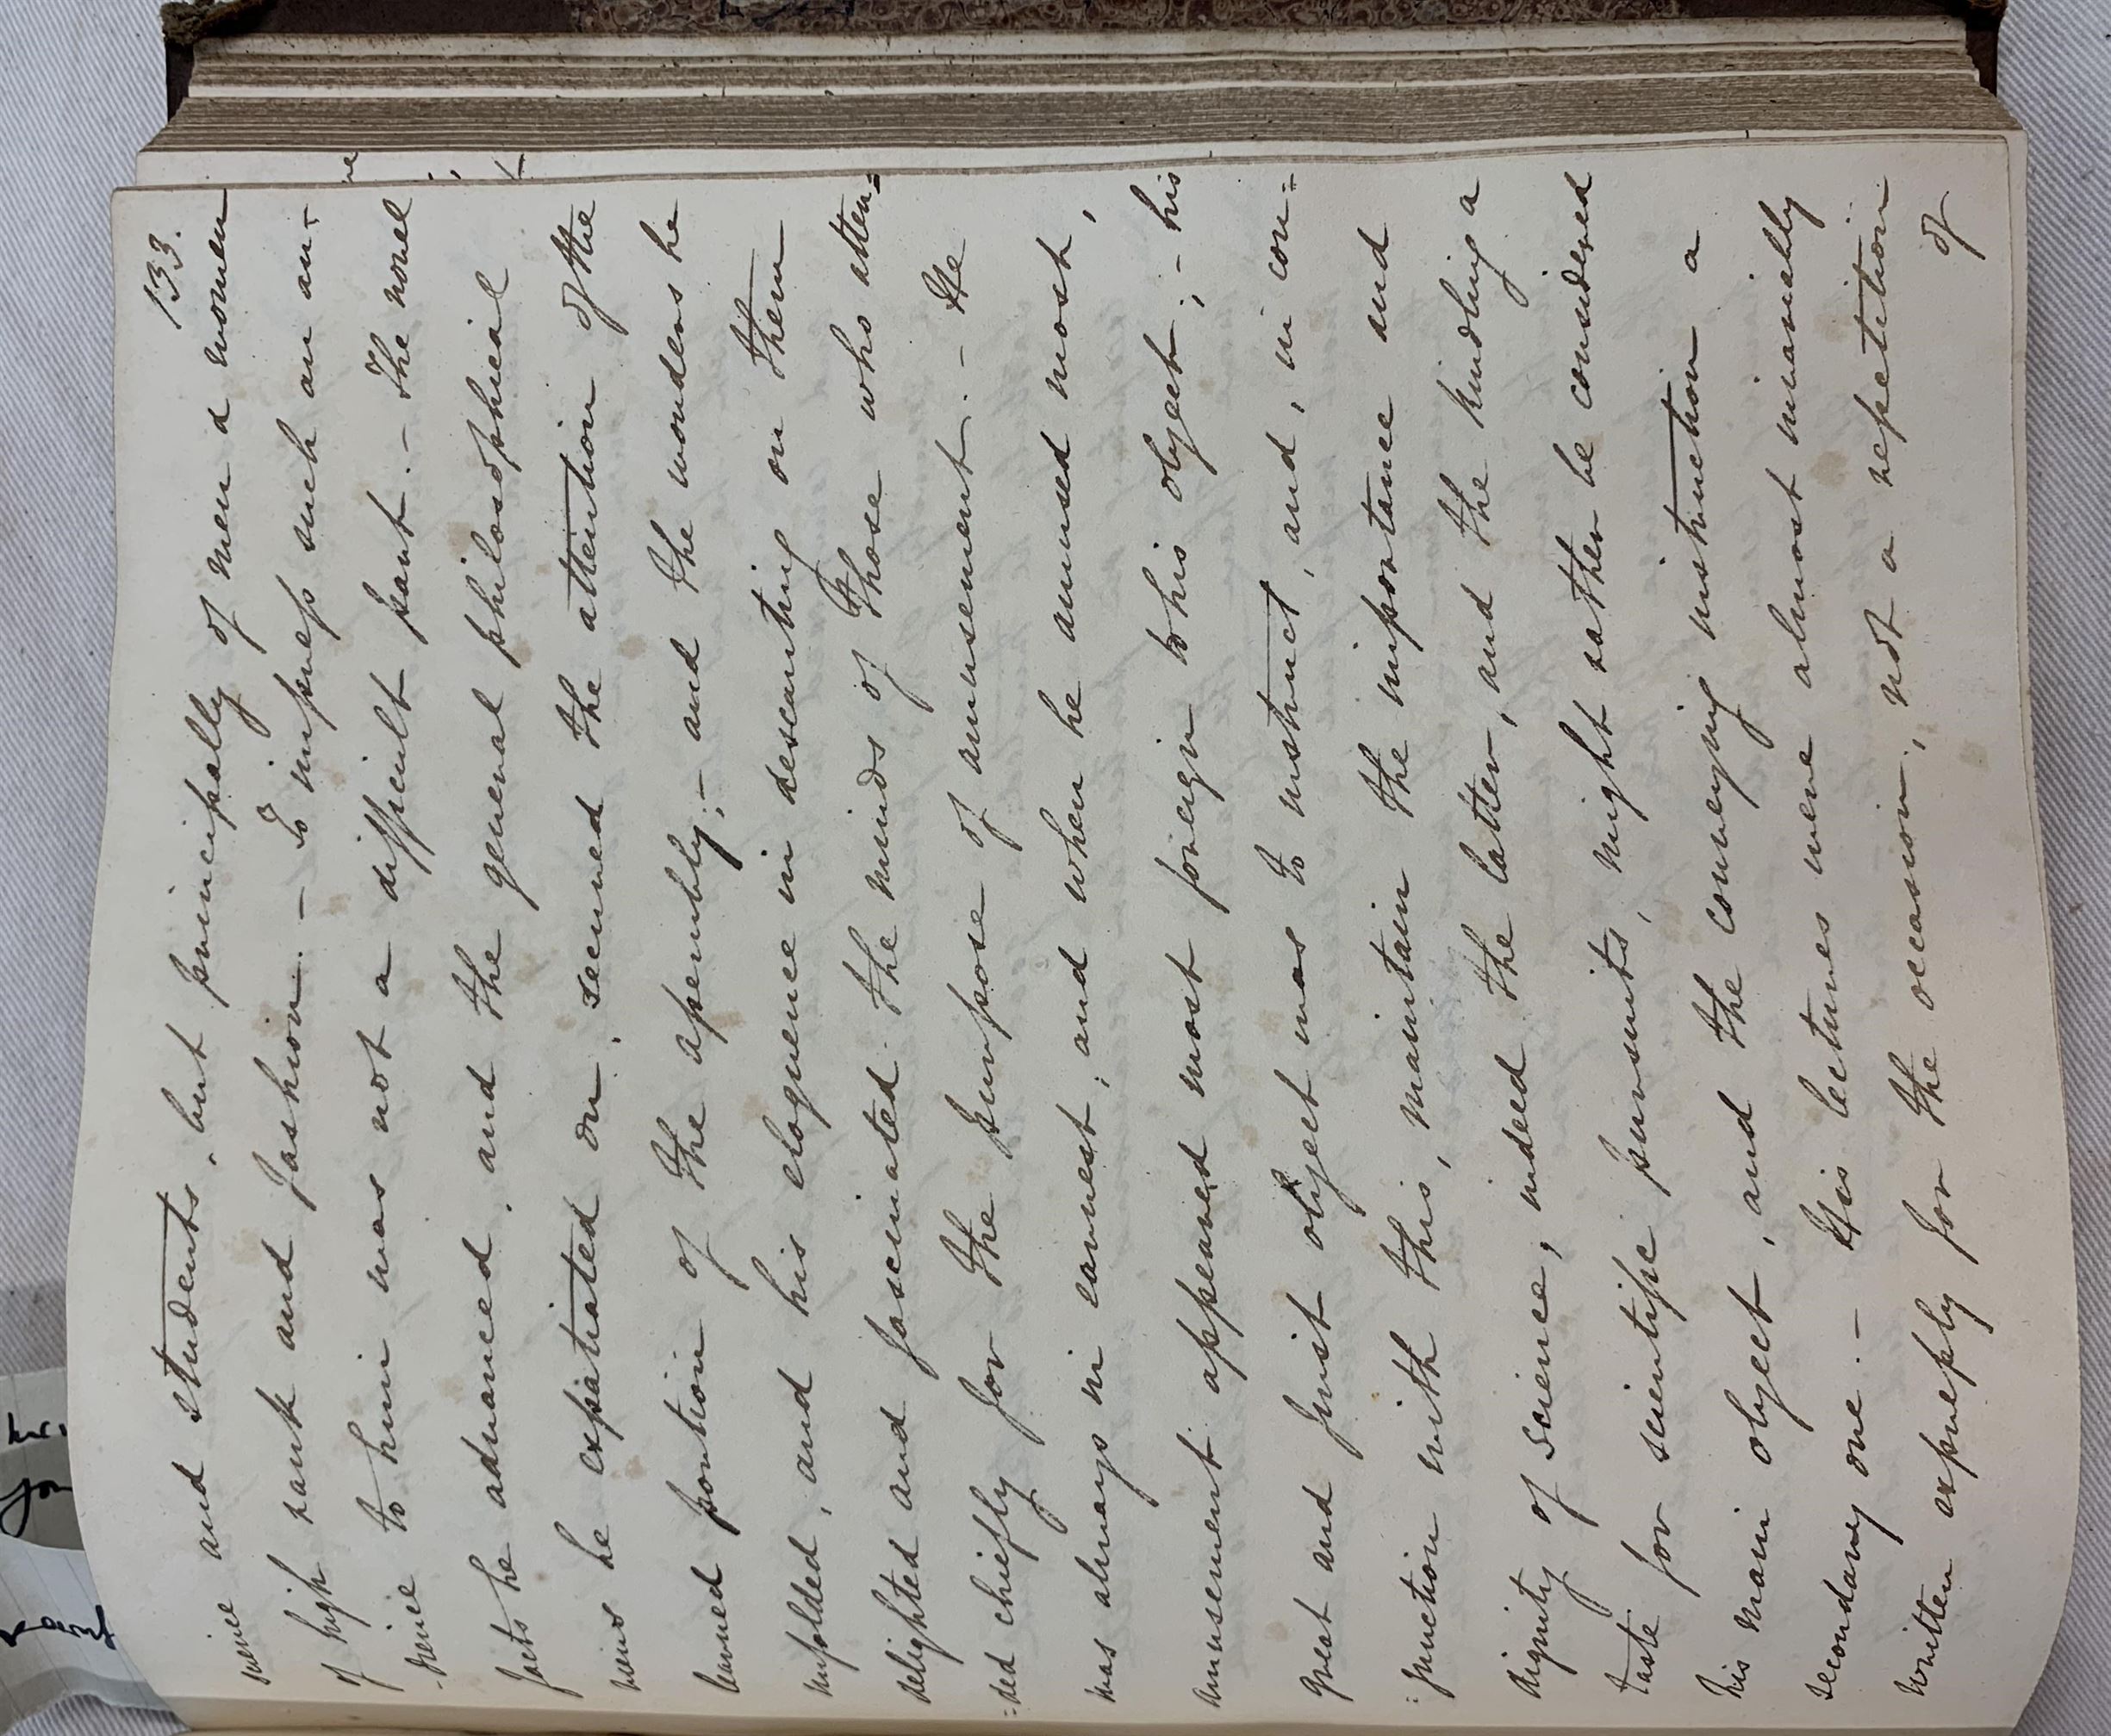 133.
science and students, but principally of men & women
of high rank and fashion. – To impress such an au-
-dience to him was not a difficult part. – The novel
facts he advanced, and the general philosophical
views he expatiated on, secured the attention of the
learned portion of the assembly; – and the wonders he
unfolded, and his eloquence in descanting on them
delighted and fascinated the minds of those who atten=
=ded chiefly for the purpose of amusement. – He
was always in earnest; and when he amused most,
amusement appeared most foreign to his object; – his
great and first object was to instruct, and, in con=
=junction with this, maintain the importance and
dignity of science; indeed the latter, and the kindling a
taste for scientific pursuits, might rather be considered
his main object, and the conveying instruction a
secondary one. – His lectures were almost invariably
written expressly for the occasion, not a repetition
of